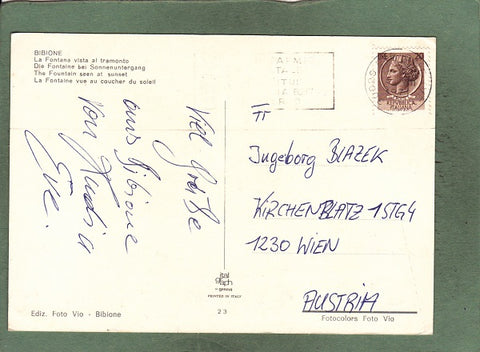 BIBIONE
La Fontana vista al tramonto
Die Fontaine bei Sonnenuntergang
The Fountain seen at sunset
La Fontaine vue au coucher du soleil
Viel Grüße
aus Bibione
von
Eve.
Fr
Ingeborg BLAZEK
KIRCHENPLATZ 1 STG 4
1230 WIEN
AUSTRIA
ital
graph
genova
PRINTED IN ITALY
23
Ediz. Foto Vio - Bibione
Fotocolors Foto Vio